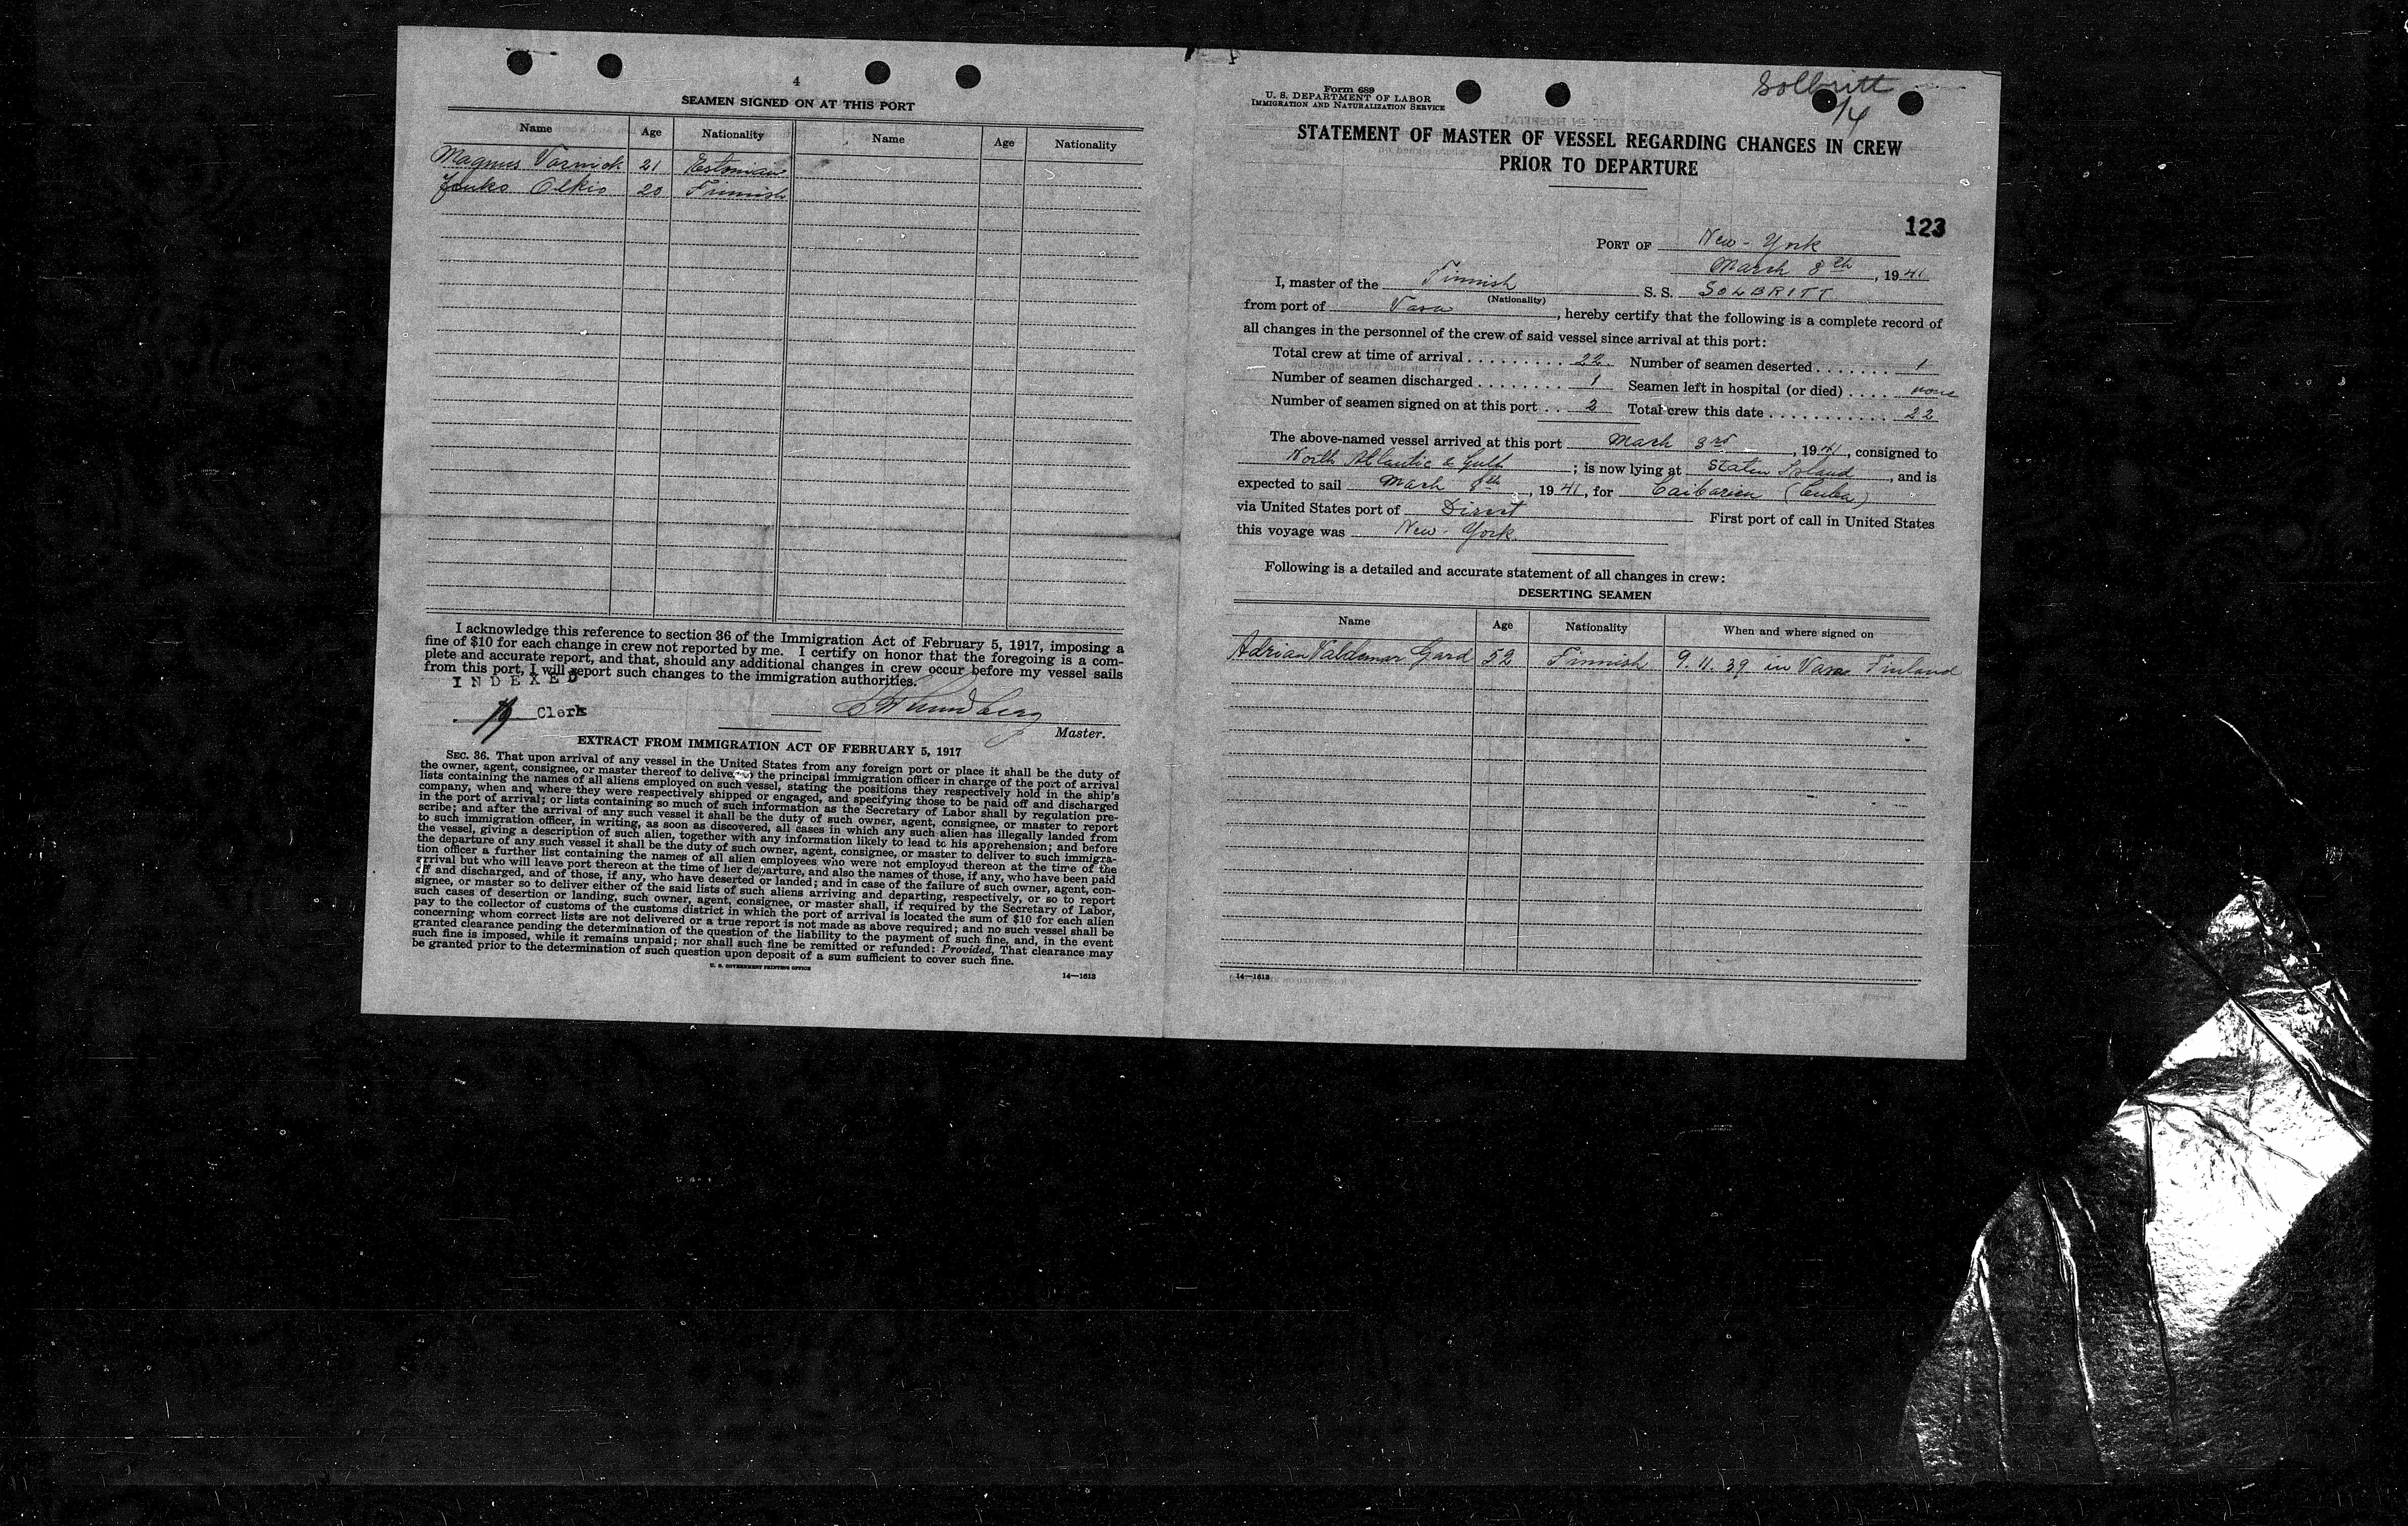 4
SEAMEN SIGNED ON AT THIS PORT
Name Age Nationality Name Age Nationality
Magnus Varmick 21 Estonian
Jouko Olkio 20 Finnish
I acknowledge this reference to section 36 of the Immigration Act of February 5, 1917, imposing a
fine of $10 for each change in crew not reported by me. I certify on honor that the foregoing is a com-
plete and accurate report, and that, should any additional changes in crew occur before my vessel sails
from this port, I will report such changes to the immigration authorities.
INDEXED
Clerk
Master.
EXTRACT FROM IMMIGRATION ACT OF FEBRUARY 5, 1917
SEC. 36. That upon arrival of any vessel in the United States from any foreign port or place it shall be the duty of
the owner, agent, consignee, or master thereof to deliver to the principal immigration officer in charge of the port of arrival
lists containing the names of all aliens employed on such vessel, stating the positions they respectively hold in the ship's
company, when and where they were respectively shipped or engaged, and specifying those to be paid off and discharged
in the port of arrival; or lists containing so much of such information as the Secretary of Labor shall by regulation pre-
scribe; and after the arrival of any such vessel it shall be the duty of such owner, agent, consignee, or master to report
to such immigration officer, in writing, as soon as discovered, all cases in which any such alien has illegally landed from
the vessel, giving a description of such alien, together with any information likely to lead to his apprehension; and before
the departure of any such vessel it shall be the duty of such owner, agent, consignee, or master to deliver to such immigra-
tion officer a further list containing the names of all alien employees who were not employed thereon at the time of the
arrival but who will leave port thereon at the time of her departure, and also the names of those, if any, who have been paid
off and discharged, and of those, if any, who have deserted or landed; and in case of the failure of such owner, agent, con-
signee, or master so to deliver either of the said lists of such aliens arriving and departing, respectively, or so to report
such cases of desertion or landing, such owner, agent, consignee, or master shall, if required by the Secretary of Labor,
pay to the collector of customs of the customs district in which the port of arrival is located the sum of $10 for each alien
concerning whom correct lists are not delivered or a true report is not made as above required; and no such vessel shall be
granted clearance pending the determination of the question of the liability to the payment of such fine, and, in the event
such fine is imposed, while it remains unpaid; nor shall such fine be remitted or refunded: Provided, That clearance may
be granted prior to the determination of such question upon deposit of a sum sufficient to cover such fine.
U. S. GOVERNMENT PRINTING OFFICE 14—1613
Solbritt
14
Form 689
U. S. DEPARTMENT OF LABOR
IMMIGRATION AND NATURALIZATION SERVICE
STATEMENT OF MASTER OF VESSEL REGARDING CHANGES IN CREW
PRIOR TO DEPARTURE
123
PORT OF New-York
March 8th, 1941
I, master of the Finnish S. S. SOLBRITT
(Nationality)
from port of Vasa, hereby certify that the following is a complete record of
all changes in the personnel of the crew of said vessel since arrival at this port:
Total crew at time of arrival . . . . . . . . . . 22. Number of seamen deserted . . . . . . . 1
Number of seamen discharged . . . . . . . . 1 Seamen left in hospital (or died) . . . . none
Number of seamen signed on at this port . . 2 Total crew this date . . . . . . . . . . . . 22
The above-named vessel arrived at this port Mach 3rd, 1941, consigned to
North Atlantic & Gulf; is now lying at Staten Island, and is
expected to sail Mach 8th, 1941, for Caibarien (Cuba)
via United States port of Direct First port of call in United States
this voyage was New-York
Following is a detailed and accurate statement of all changes in crew:
DESERTING SEAMEN
Name Age Nationality When and where signed on
Adrian Valdemar Gard 52 Finnish 9. 11. 39 in Vasa Finland
14—1613